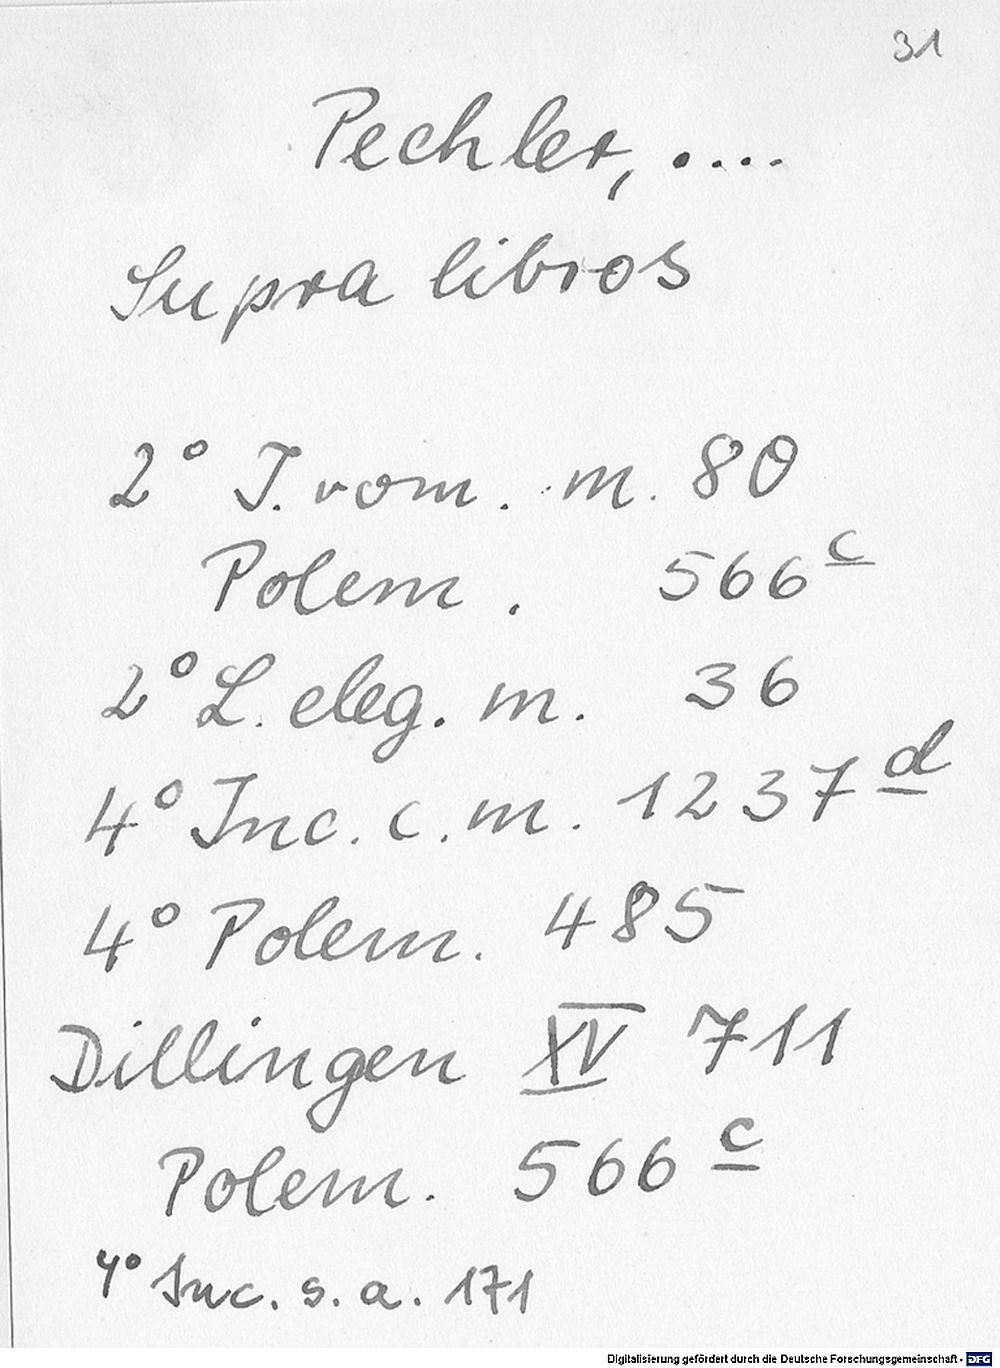 31
Pechler, ....
Supra libros
2° J. rom. m. 80
Polem. 566 c
2° L. eleg. m. 36
4° Inc. c. m. 1237 d
4° Polem. 485
Dillingen XV 711
Polem. 566 c
4° Inc. s. a. 171
Digitalisierung gefördert durch die Deutsche Forschungsgemeinschaft - DFG